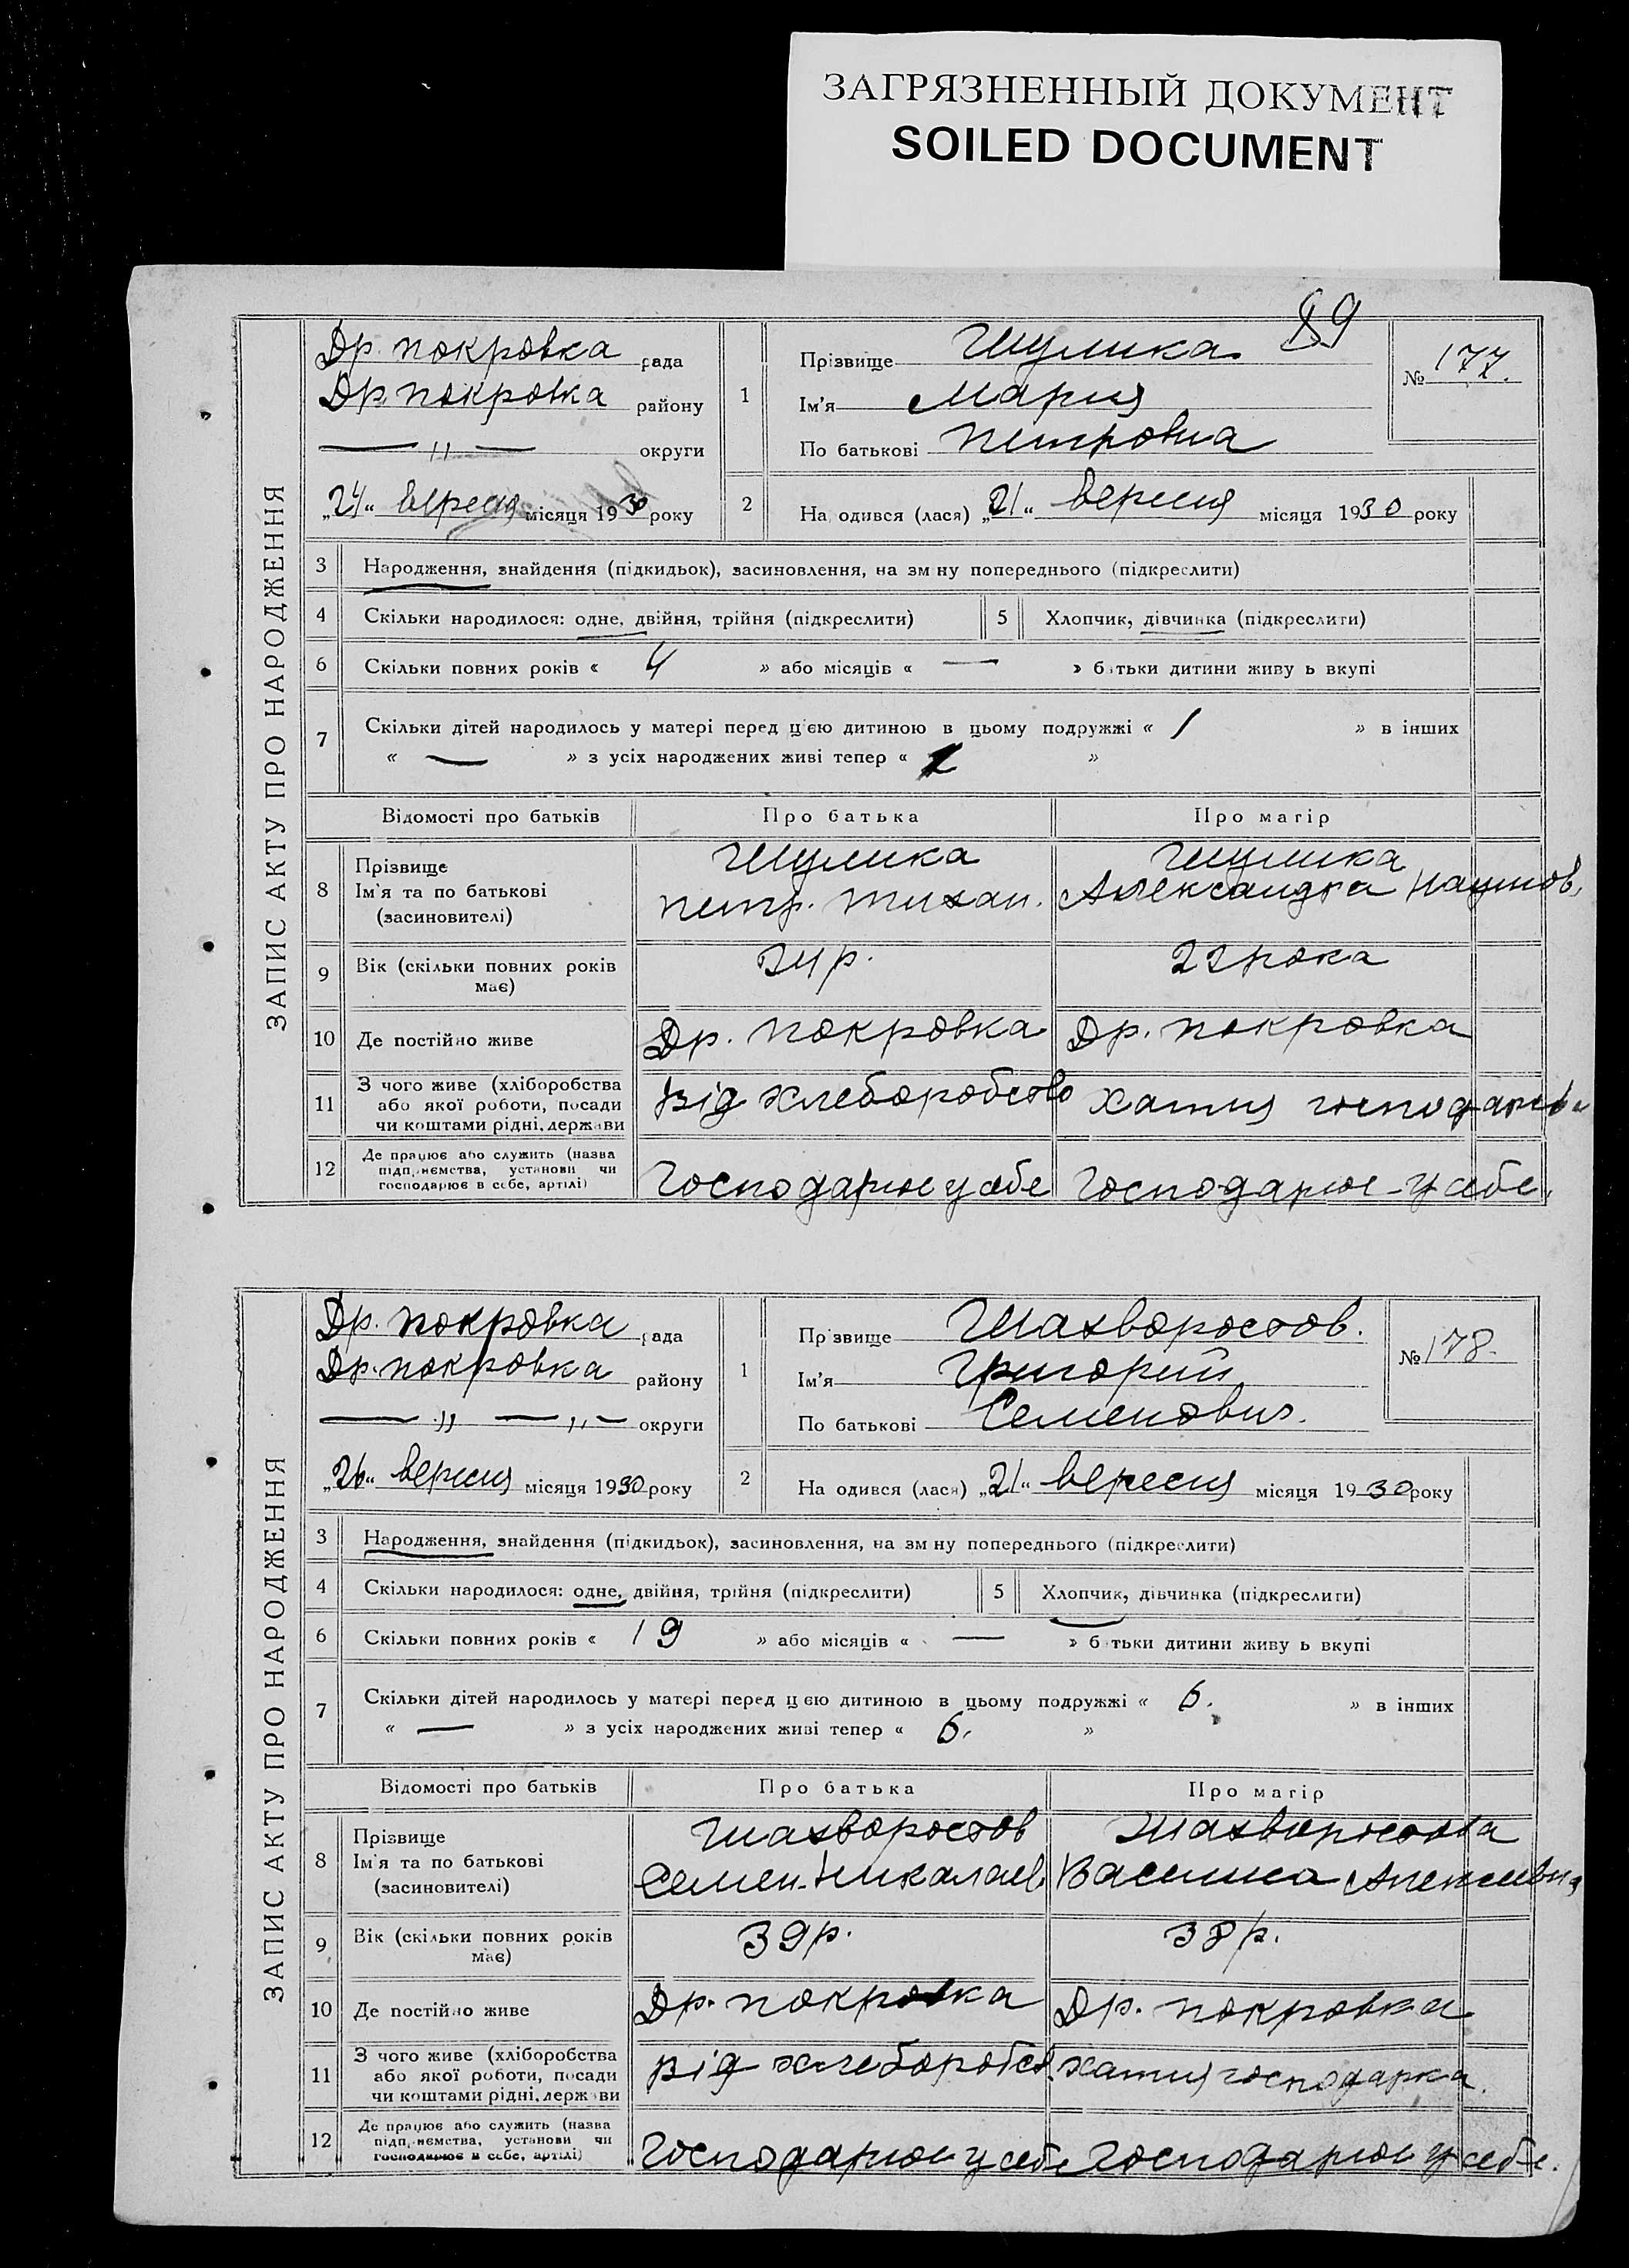 ЗАГРЯЗНЕННЫЙ ДОКУМЕНТ
SOILED DOCUMENT
89
ЗАПИС АКТУ ПРО НАРОДЖЕННЯ
Др. покровка рада
Др. покровка району
— „ — округи
„24“ вересня місяця 1930 року
1 Прізвище Шулика
Ім'я Мария
По батькові Петровна
№ 177.
2 На одився (лася) „21“ вересня місяця 1930 року
3 Народження, знайдення (підкидьок), засиновлення, на зм ну попереднього (підкреслити)
4 Скільки народилося: одне, двійня, трійня (підкреслити) 5 Хлопчик, дівчинка (підкреслити)
6 Скільки повних років « 4 » або місяців « — » б тьки дитини живу ь вкупі
7 Скільки дітей народилось у матері перед ц'єю дитиною в цьому подружжі « 1 » в інших
« — » з усіх народжених живі тепер « »
Відомості про батьків Про батька Про матір
8 Прізвище Шулика Шулика
Ім'я та по батькові Петр. Тихан. Александра Наумов.
(засиновителі)
9 Вік (скільки повних років 24р. 22 рока
має)
10 Де постійно живе Др. покровка Др. покровка
11 З чого живе (хліборобства від хлеборобство хатня господарка
або якої роботи, посади
чи коштами рідні, держави
12 Де працює або служить (назва
підп. ємства, установи чи Господарюе у себе Господарюе у себе.
господарює в себе, артілі)
ЗАПИС АКТУ ПРО НАРОДЖЕННЯ
Др. покровка рада
Др. покровка району
— „ — „ — округи
„26“ вересня місяця 1930 року
1 Пр звище Шахворостов.
Ім'я Григорий
По батькові Семенович.
№ 178.
2 На одився (лася) „21“ вересня місяця 1930 року
3 Народження, знайдення (підкидьок), засиновлення, на зм ну попереднього (підкреслити)
4 Скільки народилося: одне, двійня, трійня (підкреслити) 5 Хлопчик, дівчинка (підкреслити)
6 Скільки повних років « 19 » або місяців « — » б тьки дитини живу ь вкупі
7 Скільки дітей народилось у матері перед ц єю дитиною в цьому подружжі « 6. » в інших
« — » з усіх народжених живі тепер « 6. »
Відомості про батьків Про батька Про матір
8 Прізвище Шахворостов Шахворостова
Ім'я та по батькові Семен Никалаев Василиса Алексеевна
(засиновителі)
9 Вік (скільки повних років 39р. 38р.
має)
10 Де постійно живе Др. покровка Др. покровка
11 З чого живе (хліборобства від хлеборобств. хатня господарка.
або якої роботи, посади
чи коштами рідні, держави
12 Де працює або служить (назва
підп. ємства, установи чи Господарюе у себе Господарюе у себе.
господарює в себе, артілі)